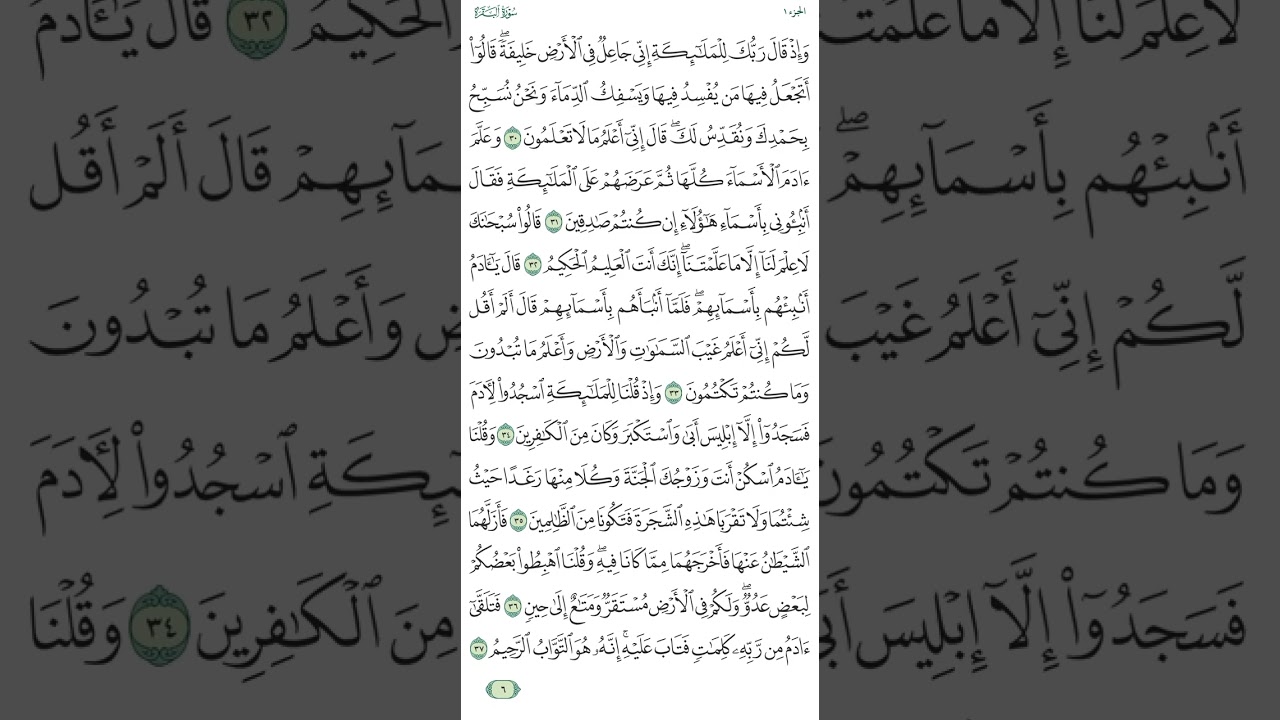 الجزء ١
سُورَةُ البَقَرَةِ
وَإِذْ قَالَ رَبُّكَ لِلْمَلَٰٓئِكَةِ إِنِّي جَاعِلٌ فِي ٱلْأَرْضِ خَلِيفَةٗۖ قَالُوٓاْ
أَتَجْعَلُ فِيهَا مَن يُفْسِدُ فِيهَا وَيَسْفِكُ ٱلدِّمَآءَ وَنَحْنُ نُسَبِّحُ
بِحَمْدِكَ وَنُقَدِّسُ لَكَۖ قَالَ إِنِّيٓ أَعْلَمُ مَا لَا تَعْلَمُونَ ٣٠ وَعَلَّمَ
ءَادَمَ ٱلْأَسْمَآءَ كُلَّهَا ثُمَّ عَرَضَهُمْ عَلَى ٱلْمَلَٰٓئِكَةِ فَقَالَ
أَنۢبِـُٔونِي بِأَسْمَآءِ هَٰٓؤُلَآءِ إِن كُنتُمْ صَٰدِقِينَ ٣١ قَالُواْ سُبْحَٰنَكَ
لَا عِلْمَ لَنَآ إِلَّا مَا عَلَّمْتَنَآۖ إِنَّكَ أَنتَ ٱلْعَلِيمُ ٱلْحَكِيمُ ٣٢ قَالَ يَٰٓـَٔادَمُ
أَنۢبِئْهُم بِأَسْمَآئِهِمْۖ فَلَمَّآ أَنۢبَأَهُم بِأَسْمَآئِهِمْ قَالَ أَلَمْ أَقُل
لَّكُمْ إِنِّيٓ أَعْلَمُ غَيْبَ ٱلسَّمَٰوَٰتِ وَٱلْأَرْضِ وَأَعْلَمُ مَا تُبْدُونَ
وَمَا كُنتُمْ تَكْتُمُونَ ٣٣ وَإِذْ قُلْنَا لِلْمَلَٰٓئِكَةِ ٱسْجُدُواْ لِأٓدَمَ
فَسَجَدُوٓاْ إِلَّآ إِبْلِيسَ أَبَىٰ وَٱسْتَكْبَرَ وَكَانَ مِنَ ٱلْكَٰفِرِينَ ٣٤ وَقُلْنَا
يَٰٓـَٔادَمُ ٱسْكُنْ أَنتَ وَزَوْجُكَ ٱلْجَنَّةَ وَكُلَا مِنْهَا رَغَدًا حَيْثُ
شِئْتُمَا وَلَا تَقْرَبَا هَٰذِهِ ٱلشَّجَرَةَ فَتَكُونَا مِنَ ٱلظَّٰلِمِينَ ٣٥ فَأَزَلَّهُمَا
ٱلشَّيْطَٰنُ عَنْهَا فَأَخْرَجَهُمَا مِمَّا كَانَا فِيهِۖ وَقُلْنَا ٱهْبِطُواْ بَعْضُكُمْ
لِبَعْضٍ عَدُوّٞۖ وَلَكُمْ فِي ٱلْأَرْضِ مُسْتَقَرّٞ وَمَتَٰعٌ إِلَىٰ حِينٖ ٣٦ فَتَلَقَّىٰٓ
ءَادَمُ مِن رَّبِّهِۦ كَلِمَٰتٖ فَتَابَ عَلَيْهِۚ إِنَّهُۥ هُوَ ٱلتَّوَّابُ ٱلرَّحِيمُ ٣٧
٦